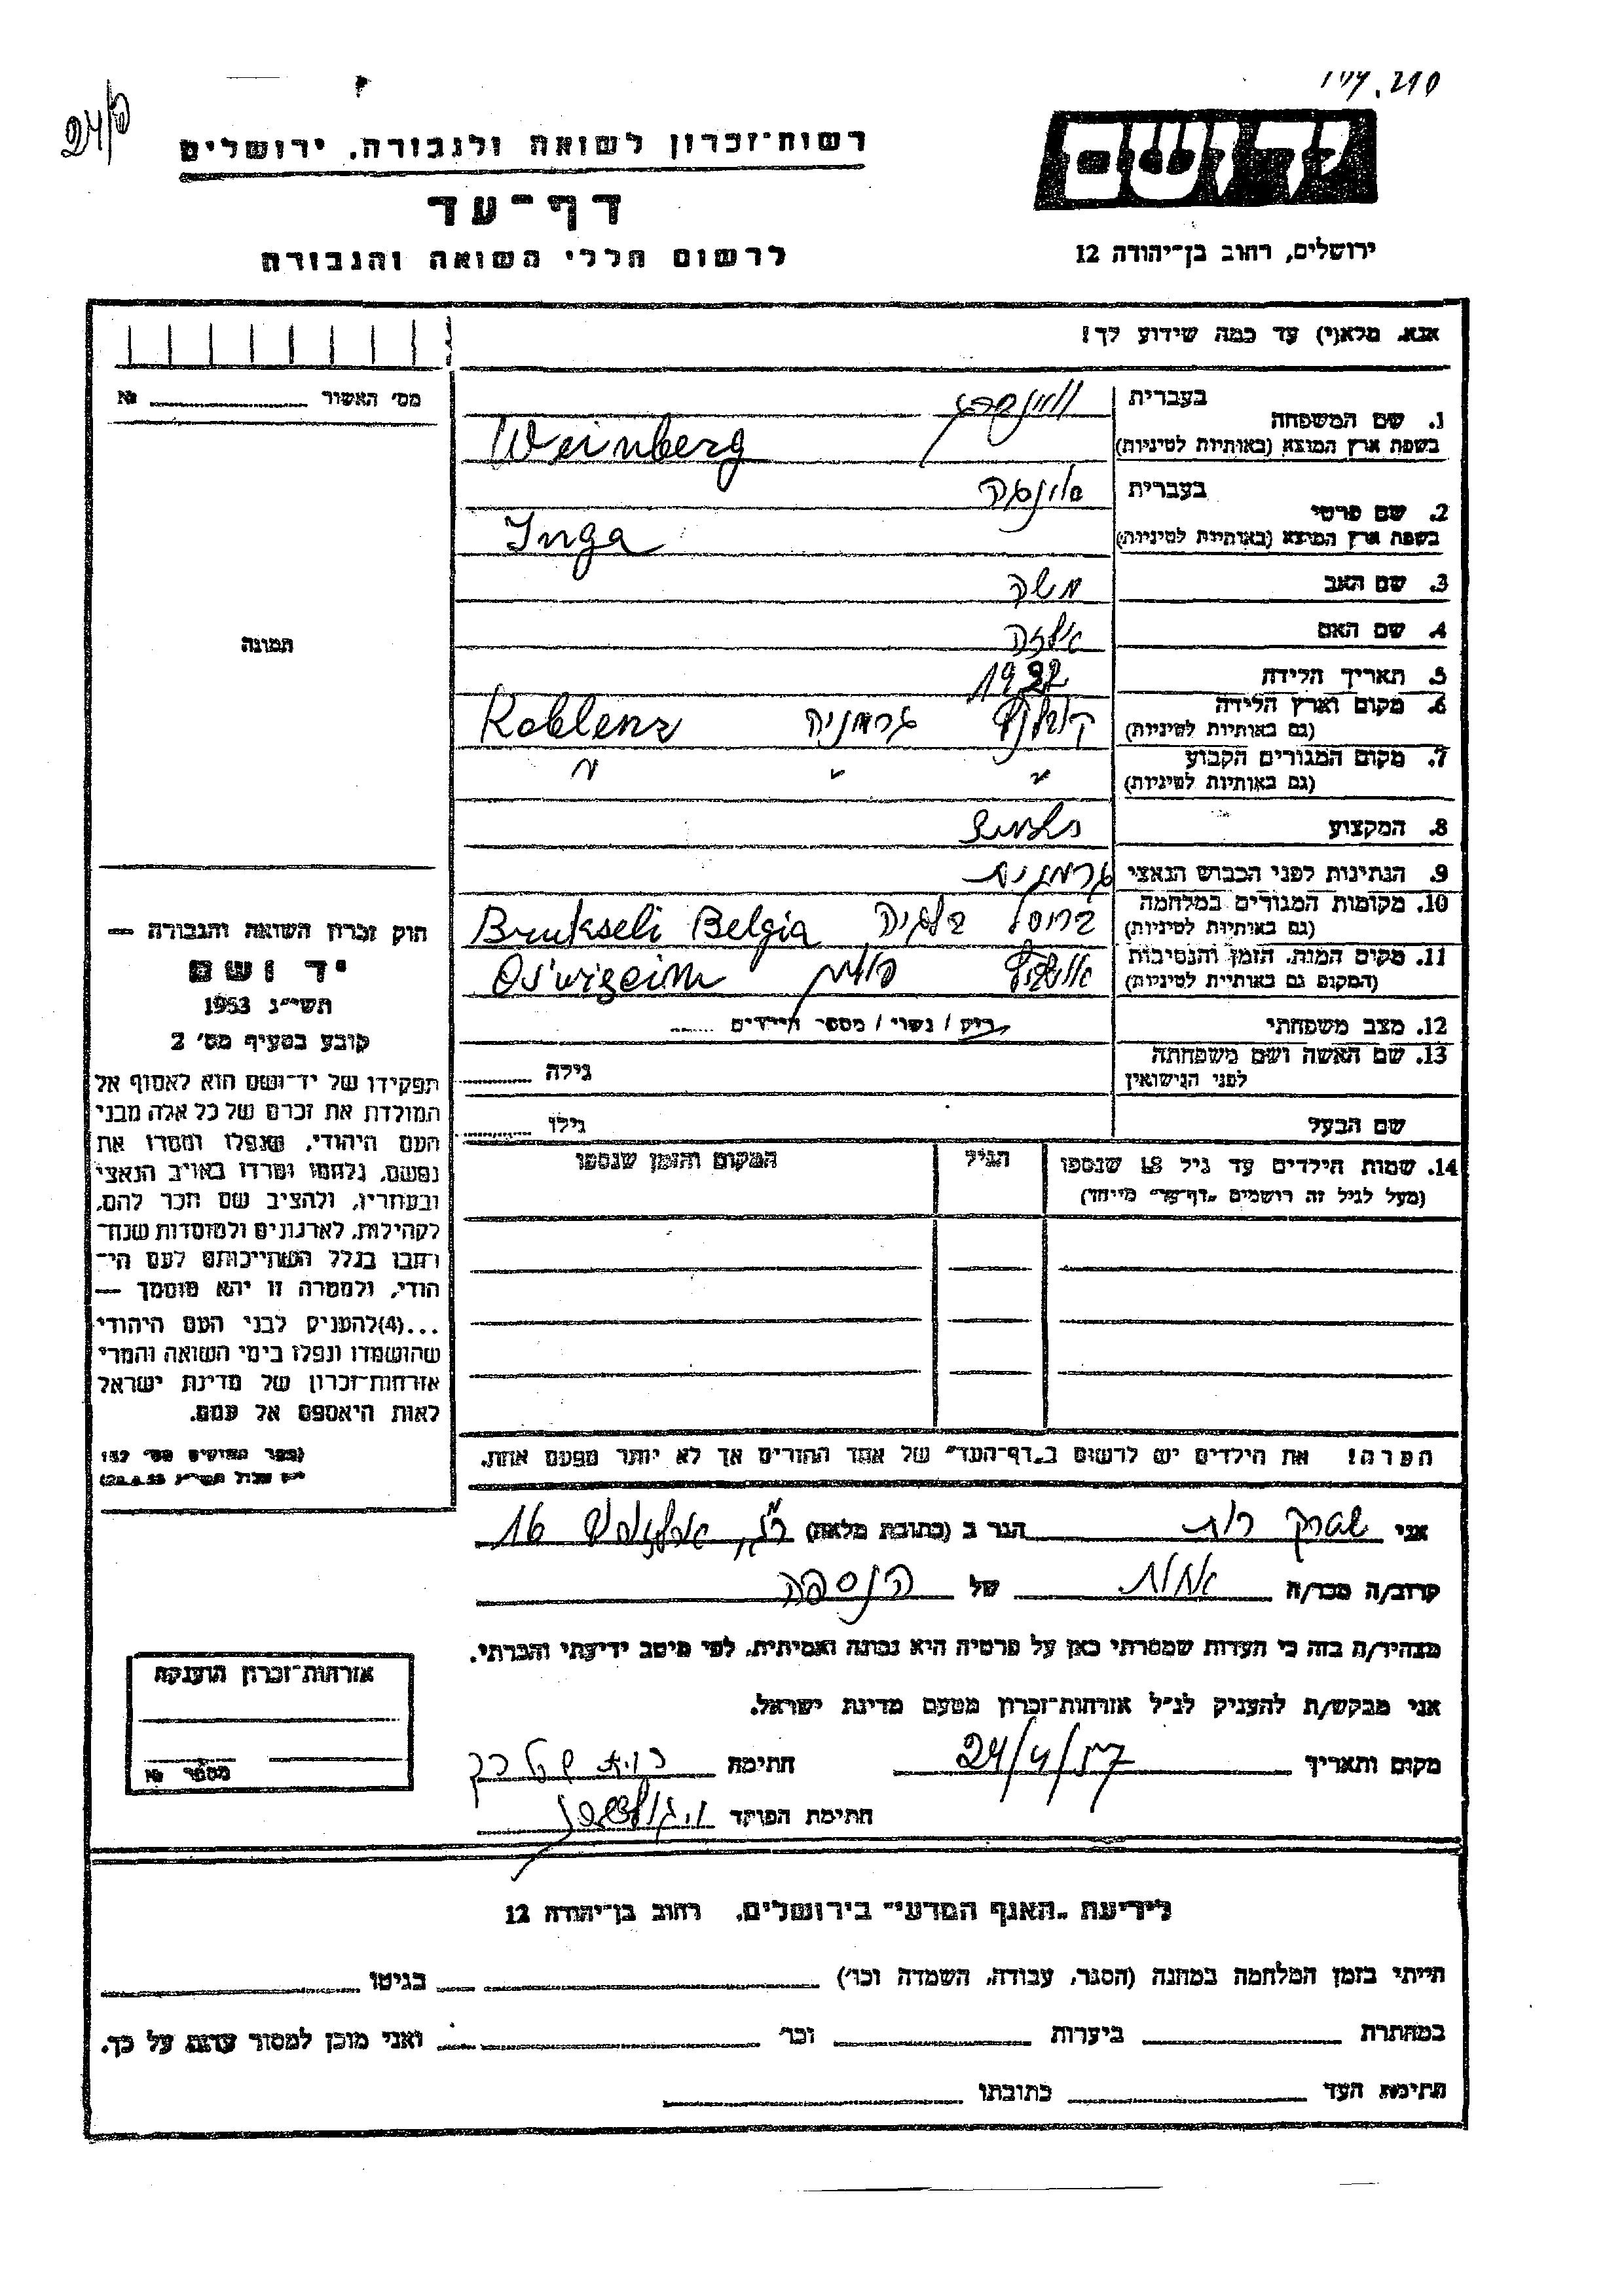 24/פ
רשות־זכרון לשואה ולגבורה, ירושלים
דף־עד
לרשום חללי השואה והגבורה
יד ושם
ירושלים, רחוב בן־יהודה 12
אנא, מלא(י) עד כמה שידוע לך!
מס' האשור № ........
1. שם המשפחה
בעברית ויינברג
בשפת ארץ המוצא (באותיות לטיניות) Weinberg
2. שם פרטי
בעברית אינגה
בשפת ארץ המוצא (באותיות לטיניות) Inga
3. שם האב משה
4. שם האם אילזה
5. תאריך הלידה 1922
6. מקום וארץ הלידה קובלנץ גרמניה Koblenz
(גם באותיות לטיניות)
7. מקום המגורים הקבוע " " "
(גם באותיות לטיניות)
8. המקצוע
9. הנתינות לפני הכבוש הנאצי גרמנית
10. מקומות המגורים במלחמה בריסל בלגיה Brukseli Belgia
(גם באותיות לטיניות)
11. מקום המות, הזמן והנסיבות אושביץ פולין Os'wizeim
(המקום גם באותיות לטיניות)
12. מצב משפחתי רוק / נשוי / מספר הילדים ......
13. שם האשה ושם משפחתה
לפני הנישואין גילה ........
שם הבעל גילו ........
14. שמות הילדים עד גיל 18 שנספו הגיל המקום והזמן שנספו
(מעל לגיל זה רושמים „דף־עד" מיוחד)
הערה! את הילדים יש לרשום ב„דף־העד" של אחד ההורים אך לא יותר מפעם אחת.
תמונה
חוק זכרון השואה והגבורה —
יד ושם
תשי"ג 1953
קובע בסעיף מס' 2
תפקידו של יד־ושם הוא לאסוף אל
המולדת את זכרם של כל אלה מבני
העם היהודי, שנפלו ומסרו את
נפשם, נלחמו ומרדו באויב הנאצי
ובעוזריו, ולהציב שם וזכר להם,
לקהילות, לארגונים ולמוסדות שנח־
רבו בגלל השתייכותם לעם הי־
הודי, ולמטרה זו יהא מוסמך —
...(4)להעניק לבני העם היהודי
שהושמדו ונפלו בימי השואה והמרי
אזרחות־זכרון של מדינת ישראל
לאות היאספם אל עמם.
(ספר החוקים מס' 132
אני רות הגר ב (כתובת מלאה) 16
קרוב/ה מכר/ה אחות של הנספה
מצהיר/ה בזה כי העדות שמסרתי כאן על פרטיה היא נכונה ואמיתית, לפי מיטב ידיעתי והכרתי.
אני מבקש/ת להעניק לנ"ל אזרחות־זכרון מטעם מדינת ישראל.
מקום ותאריך 24/4/57 חתימה רות
חתימת הפוקד
אזרחות־זכרון הוענקה
מספר №
לידיעת „האגף המדעי" בירושלים, רחוב בן־יהודה 12
הייתי בזמן המלחמה במחנה (הסגר, עבודה, השמדה וכו') ........ בגיטו ........
במחתרת ........ ביערות ........ וכו' ........ ואני מוכן למסור עדות על כך.
חתימת העד ........ כתובתו ........